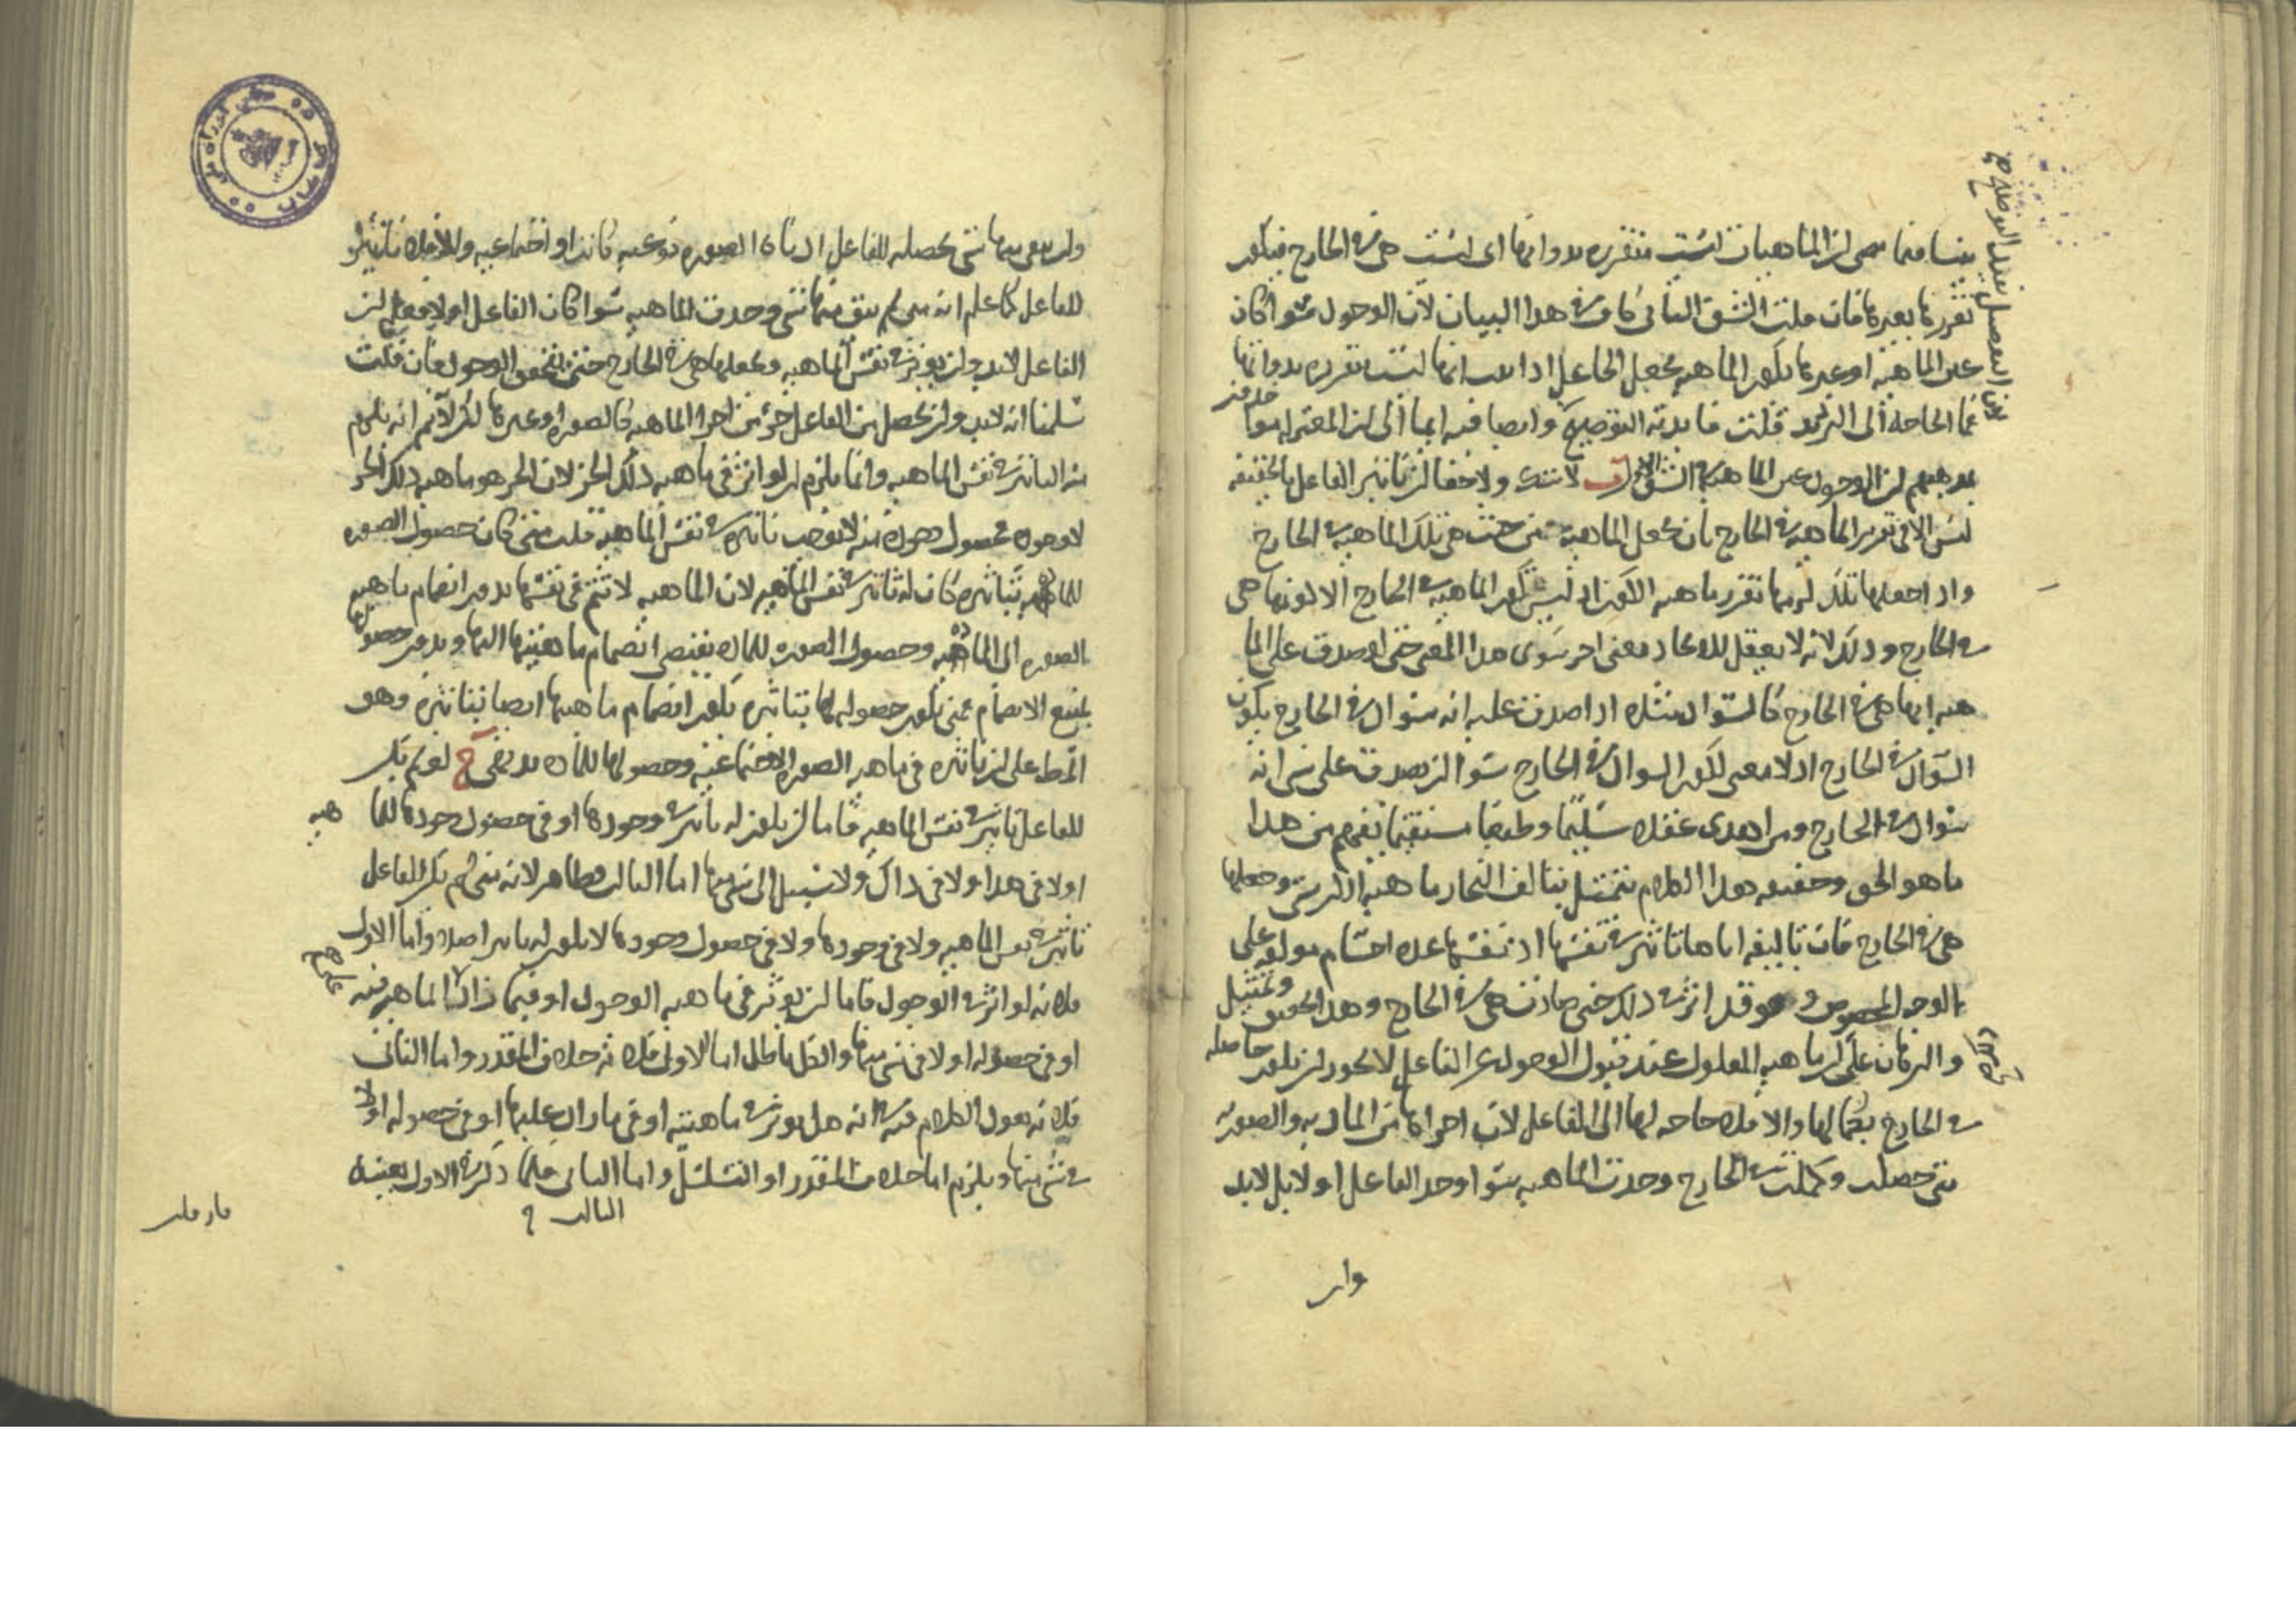 بينا فيما مضى ان الماهيات ليست متقررة بذواتها اى ليست هى فى الخارج فيكون
تقررها بغيرها فان قلت الشق الثانى كاف فى هذا البيان لان الوجود سوا كان
عين الماهية او غيرها يكون الماهية بجعل الجاعل اذا ثبت انها ليست بقررة بذواتها
فما الحاجة الى الترديد قلت فايدته التوضيح وايضا فيه ايما الى ان المعتزلة
مذهبهم ان الوجود عين الماهية الشق الاول لا شك ولا خفا ان تاثير الفاعل بالحقيقة
ليس الا فى تقرير الماهية فى الخارج بان يجعل الماهية من حيث هى تلك الماهية فى الخارج
واذا جعلها تلك لزمها تقرر ماهية الكون اذ ليس لكون الماهية فى الخارج الا كونها هى
فى الخارج وذلك لانه لا يعقل للايجاد معنى اخر سوى هذا المعنى حتى لو صدق على الما
هية انها هى فى الخارج كالسواد مثلا اذا صدق عليه انه سواد فى الخارج يكون
السواد فى الخارج اذ لا معنى لكون السواد فى الخارج سوا ان يصدق على شى انه
سواد فى الخارج ومن اهدى عقلا سليما وطبعا مستقيما يفهم من هذا
ما هو الحق وحقيقة هذا الكلام يتمثل بتاليف النجار ماهية الكرسى وجعلها
هى فى الخارج فان تاليفه اياها تاثير فى نفسها اذ نفسها عدة اجسام مولفة على
الوجه المخصوص وهو قد اثر فى ذلك حتى صارت هى فى الخارج وهذا تحقيق وتمثيل
والبرهان على ان ماهية المعلول عند قبول الوجود عن الفاعل لا يجوز ان يكون حاصلة
فى الخارج بكمالها والا فلا حاجة لها الى الفاعل لان اجزاها من المادية والصورية
متى حصلت وكملت فى الخارج وجدت الماهية سوا وجد الفاعل او لا بل لابد
وان
وان يبقى منها شى يحصله الفاعل اذ ذاك الصورة نوعية كانت او اجتماعية والا فلا تاثير
للفاعل كما علم انه متى لم يبق منها شى وجدت الماهية سوا كان الفاعل او لا فعلم ان
الفاعل لابد وان يوثر فى نفس الماهية ويجعلها هى فى الخارج حتى يتحقق الوجود فان قلت
سلمنا انه لابد وان يحصل من الفاعل جزء من اجزا الماهية كالصورة او غيرها لكن لا نم انه يلزم
منه التاثير فى نفس الماهية وانما يلزم ان لو اثر فى ماهية ذلك الجز لان الجز هو ماهية ذلك الجز
لا وجوده فحصول وجوده منه لا يوجب تاثيره فى نفس الماهية قلت متى كان حصول الصورة
للمادة بتاثيره كان له تاثير فى نفس الماهية لان الماهية لا تتم فى نفسها بدون انضمام ماهية
الصورة الى المادة وحصول الصورة للمادة يقتضى انضمام ماهيتها اليها وبدون حصولها
يمتنع الانضمام فمتى يكون حصولها لها بتاثيره يكون انضمام ماهيتها ايضا بتاثيره وهو
المط على ان تاثيره فى ماهية الصورة الاجتماعية وحصولها للمادة بديهى ج لو لم يكن
للفاعل تاثير فى نفس الماهية فاما ان يكون له تاثير فى وجودها او فى حصول وجودها للما هية
او لا فى هذا ولا فى ذاك ولا سبيل الى شى منها اما الثالث فظاهر لانه متى لم يكن للفاعل
تاثير فى نفس الماهية ولا فى وجودها ولا فى حصول وجودها لا يكون له تاثير اصلا واما الاول
فلانه لو اثر فى الوجود فاما ان يوثر فى ماهية الوجود او فيما زاد الماهية فيه
او فى حصوله او لا فى شى منها والكل باطل اما الاول فلانه خلاف المقدر واما الثانى
فلانه نعود الكلام فيه انه هل يوثر فى ماهيته او فى ما زاد عليها او فى حصوله او لا
فى شى منها ويلزم اما خلاف المقدر او التسلسل واما الثانى فلما ذكر فى الاول بعينه
الثالث
فان قلت